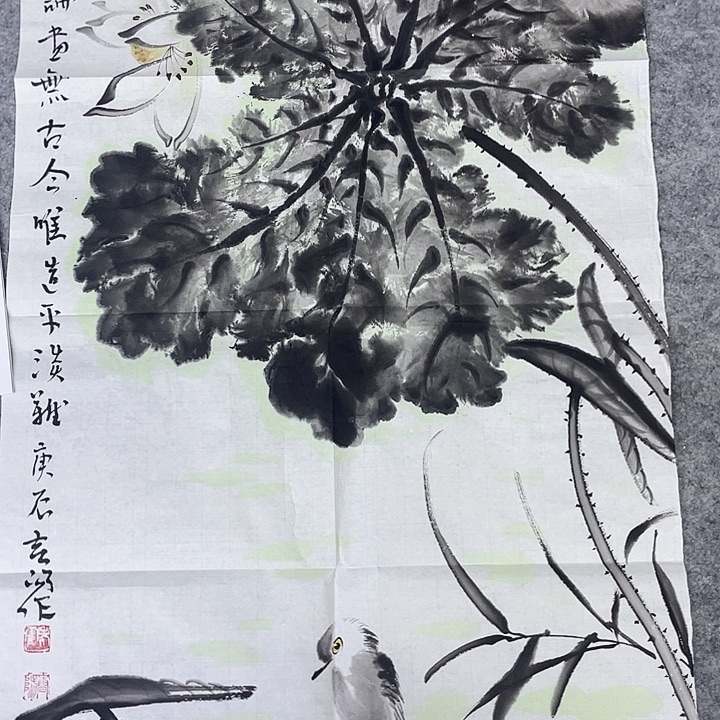 論畫無古今唯造平淡難庚辰吉鴻作